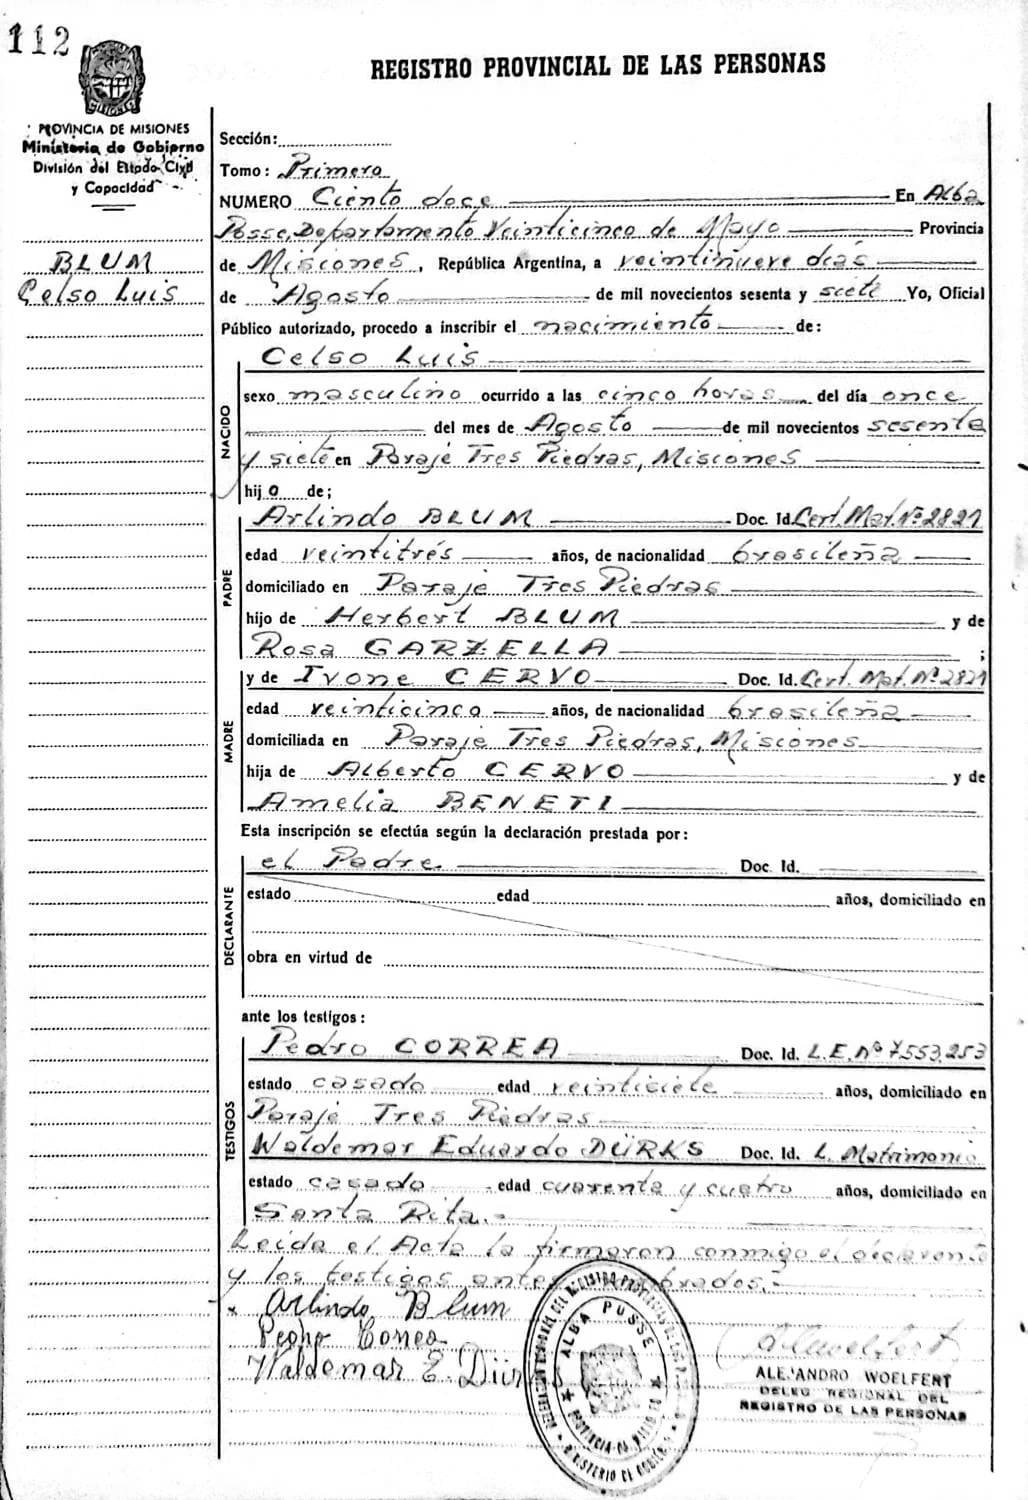 112
REGISTRO PROVINCIAL DE LAS PERSONAS
PROVINCIA DE MISIONES
Ministerio de Gobierno
División del Estado Civil
y Capacidad
BLUM
Celso Luis
Sección:
Tomo: Primero
NUMERO Ciento doce En Alba
Posse, Departamento Veinticinco de Mayo Provincia
de Misiones, República Argentina, a veintinueve días
de Agosto de mil novecientos sesenta y siete Yo, Oficial
Público autorizado, procedo a inscribir el nacimiento de:
NACIDO
Celso Luis
sexo masculino ocurrido a las cinco horas del día once
del mes de Agosto de mil novecientos sesenta
y siete en Paraje Tres Piedras, Misiones
hijo de;
PADRE
Arlindo BLUM Doc. Id. Cert. Mat. Nº 2821
edad veintitrés años, de nacionalidad brasileña
domiciliado en Paraje Tres Piedras
hijo de Herbert BLUM y de
Rosa GARZELLA ;
MADRE
y de Ivone CERVO Doc. Id. Cert. Mat. Nº 2821
edad veinticinco años, de nacionalidad brasileña
domiciliada en Paraje Tres Piedras, Misiones
hija de Alberto CERVO y de
Amelia BENETI
Esta inscripción se efectúa según la declaración prestada por:
DECLARANTE
el Padre Doc. Id.
estado edad años, domiciliado en
obra en virtud de
ante los testigos:
TESTIGOS
Pedro CORREA Doc. Id. L.E. Nº 7.553.253
estado casado edad veintisiete años, domiciliado en
Paraje Tres Piedras
Waldemar Eduardo DÜRKS Doc. Id. L. Matrimonio
estado casado edad cuarenta y cuatro años, domiciliado en
Santa Rita.-
Leida el Acta la firmaron conmigo el declarante
y los testigos antes
Arlindo Blum
Pedro Correa
Waldemar E. Dürks
ALBA POSSE
PROVINCIA DE MISIONES
MINISTERIO DE GOBIERNO
ALEJANDRO WOELFERT
DELEG. REGIONAL DEL
REGISTRO DE LAS PERSONAS